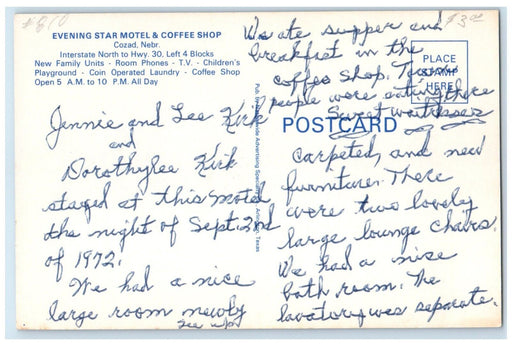 EVENING STAR MOTEL & COFFEE SHOP
Cozad, Nebr.
Interstate North to Hwy. 30, Left 4 Blocks
New Family Units - Room Phones - T.V. - Children's
Playground - Coin Operated Laundry - Coffee Shop
Open 5 A.M. to 10 P.M. All Day
Jennie and Lee Kirk
and
Dorothylee Kirk
stayed at this motel
the night of Sept. 2nd
of 1972.
We had a nice
large room newly
see up
We ate supper and
breakfast in the
coffee shop.
people were eating there
Sweet waitresses
$3.00
PLACE
STAMP
HERE
POSTCARD
carpeted, and new
furniture. There
were two lovely
large lounge chairs.
We had a nice
bath room. The
lavatory was separate.